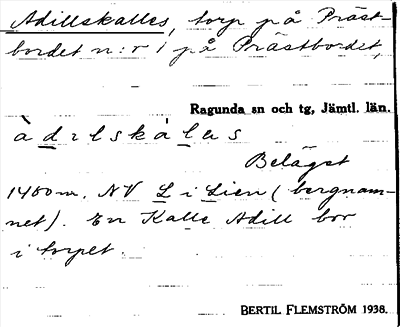 Adillskalles, torp på Präst-
bordet n:r 1 på Prästbordet,
Ragunda sn och tg, Jämtl. län.
àdɩlskàlɩs
Belägst
1400 m. NV L i Lien (bergnam-
net). En Kalle Adill bor
i torpet.
BERTIL FLEMSTRÖM 1938.